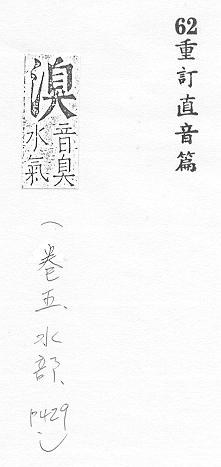 62重訂直音篇
溴
音臭
水氣
（卷五、水部、p429）